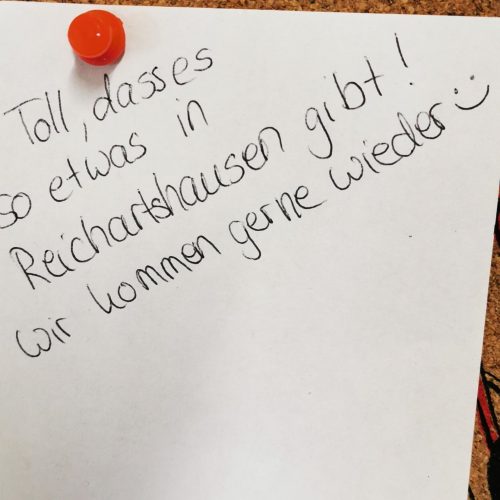 Toll, dass es
so etwas in
Reichartshausen gibt!
wir kommen gerne wieder :)